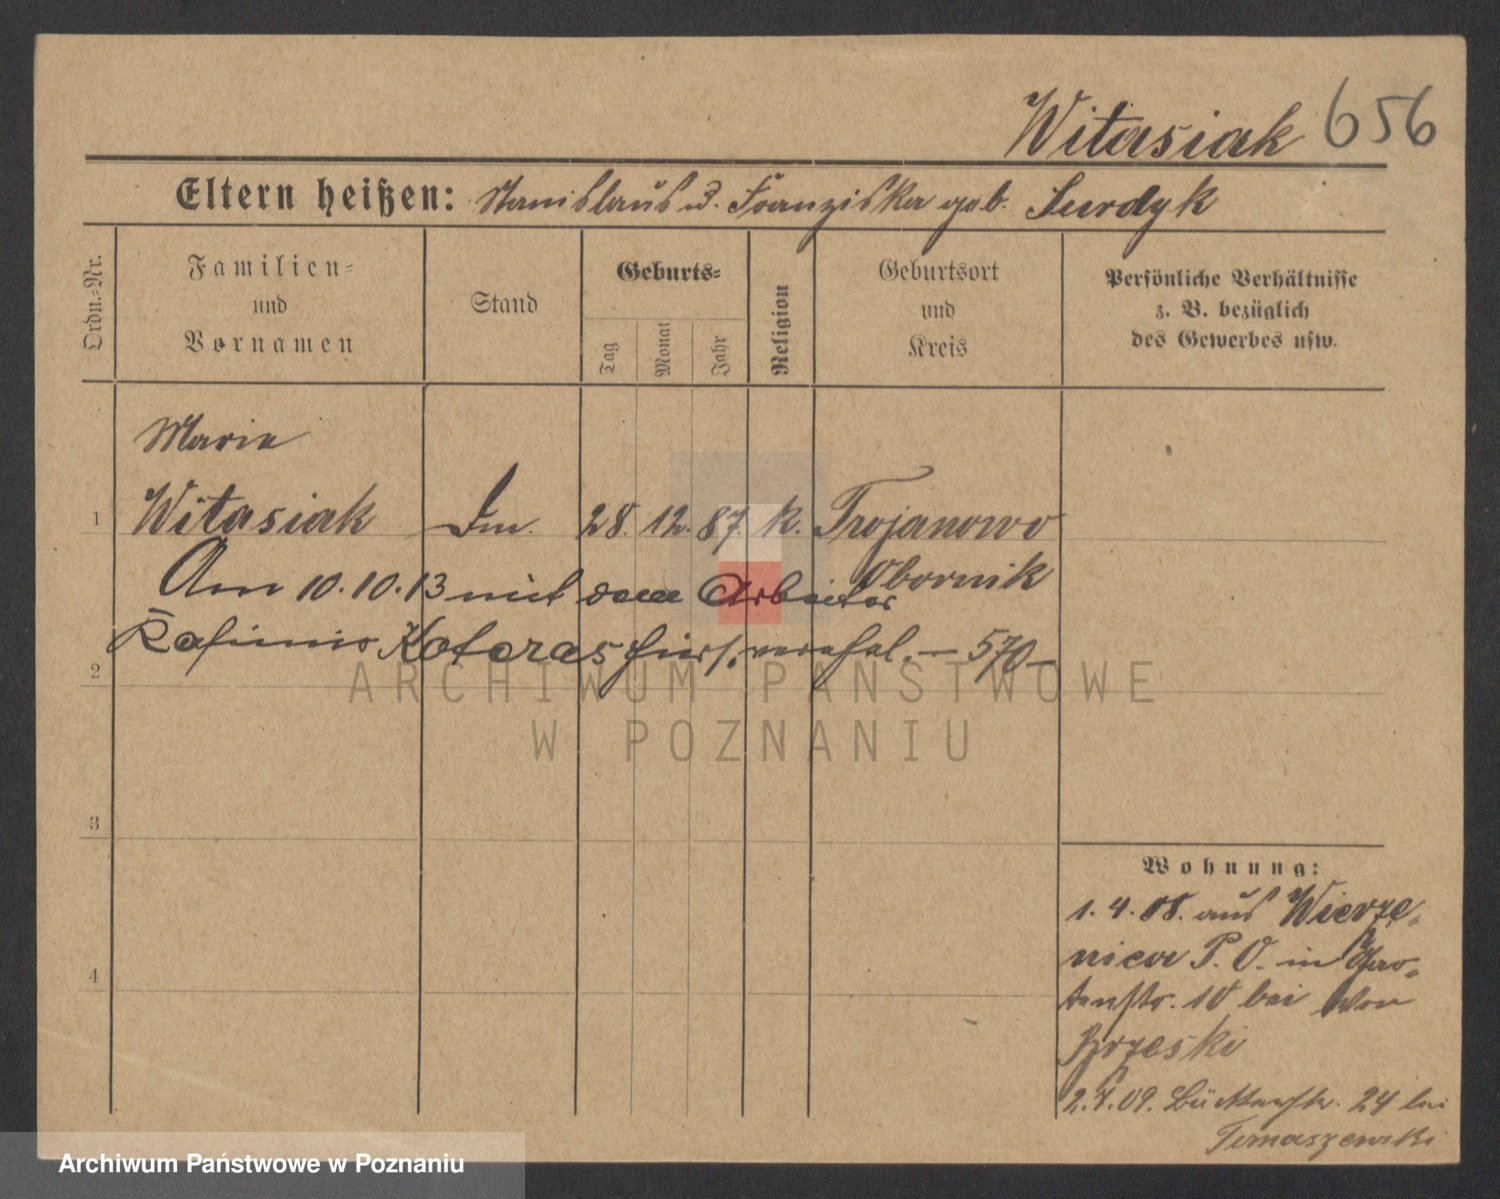 Witasiak 656
Eltern heißen: Stanislaus u. Franziska geb. Surdyk
Ordn.-Nr.
Familien-
und
Vornamen
Stand
Geburts-
Tag
Monat
Jahr
Religion
Geburtsort
und
Kreis
Persönliche Verhältnisse
z. B. bezüglich
des Gewerbes usw.
Marie
1 Witasiak 28. 12. 87. k. Trojanowo
Obornik
Am 10.10.13 mit dem Arbeiter
Kasimir Koteras hier verehel. – 570 –
2
3
4
ARCHIWUM PAŃSTWOWE
W POZNANIU
Wohnung:
1. 4. 08. aus Wierze-
nica P. O. in
bei
Brzeski
2.7.09. 24 bei
Tomaszewski
Archiwum Państwowe w Poznaniu